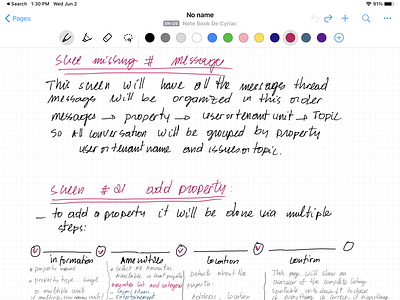 Search 1:30 PM Wed Jun 2 91%
Pages No name
EN-US Note Book De Cyriac
missing # messages
This screen will have all the messages thread
messages will be organized in this order
messages → property → user or tenant unit → Topic
So all conversation will be grouped by property
user or tenant name and issues or topic.
screen # add property:
– to add a property it will be done via multiple
steps:
information Amenities Location Confirm
• property name
• property type: single
or multiple unit
Select all amenities
available in that property
Details about the
property:
Address, location
This page will show an
overview of the complete listing